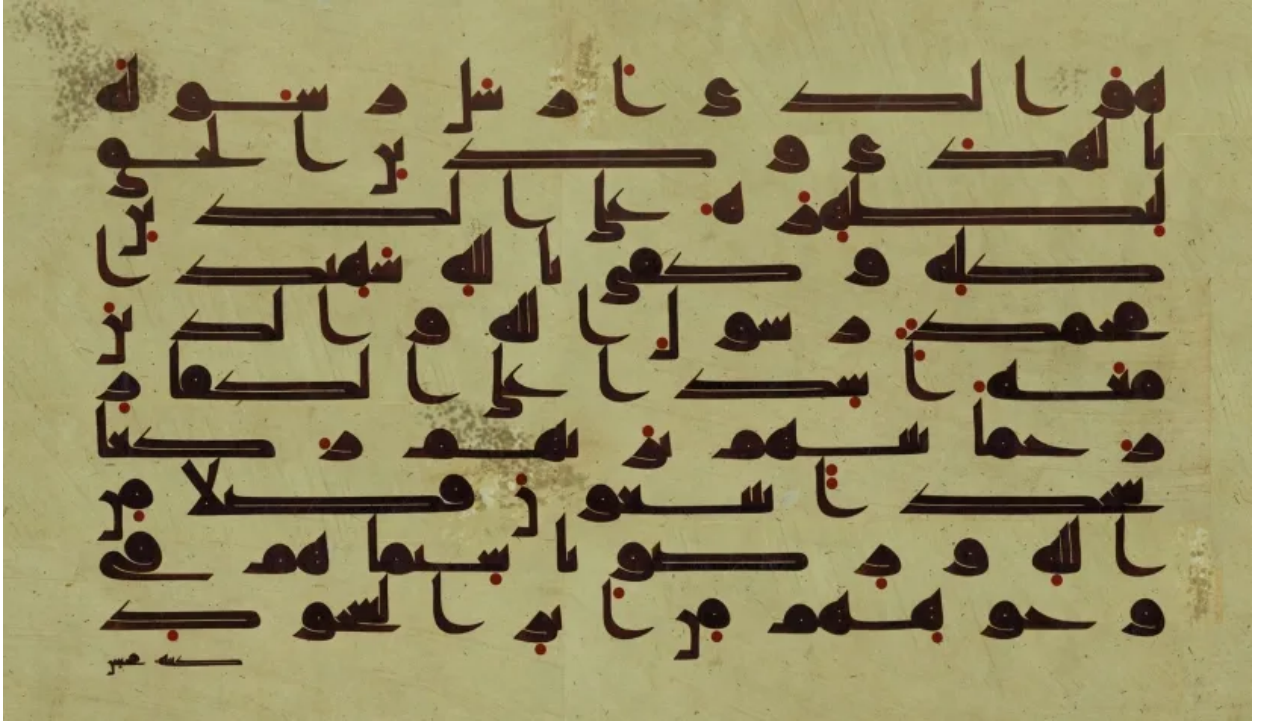 هو الذي ارسل رسوله
بالهدى و دين الحق
ليظهره على الدين
كله و كفى بالله شهيدا
محمد رسول الله و الذين
معه اشدا على الكفار
رحما بينهم تريهم ركعا
سجدا يبتغون فضلا من
الله و رضوانا سيماهم في
وجوههم من اثر السجود